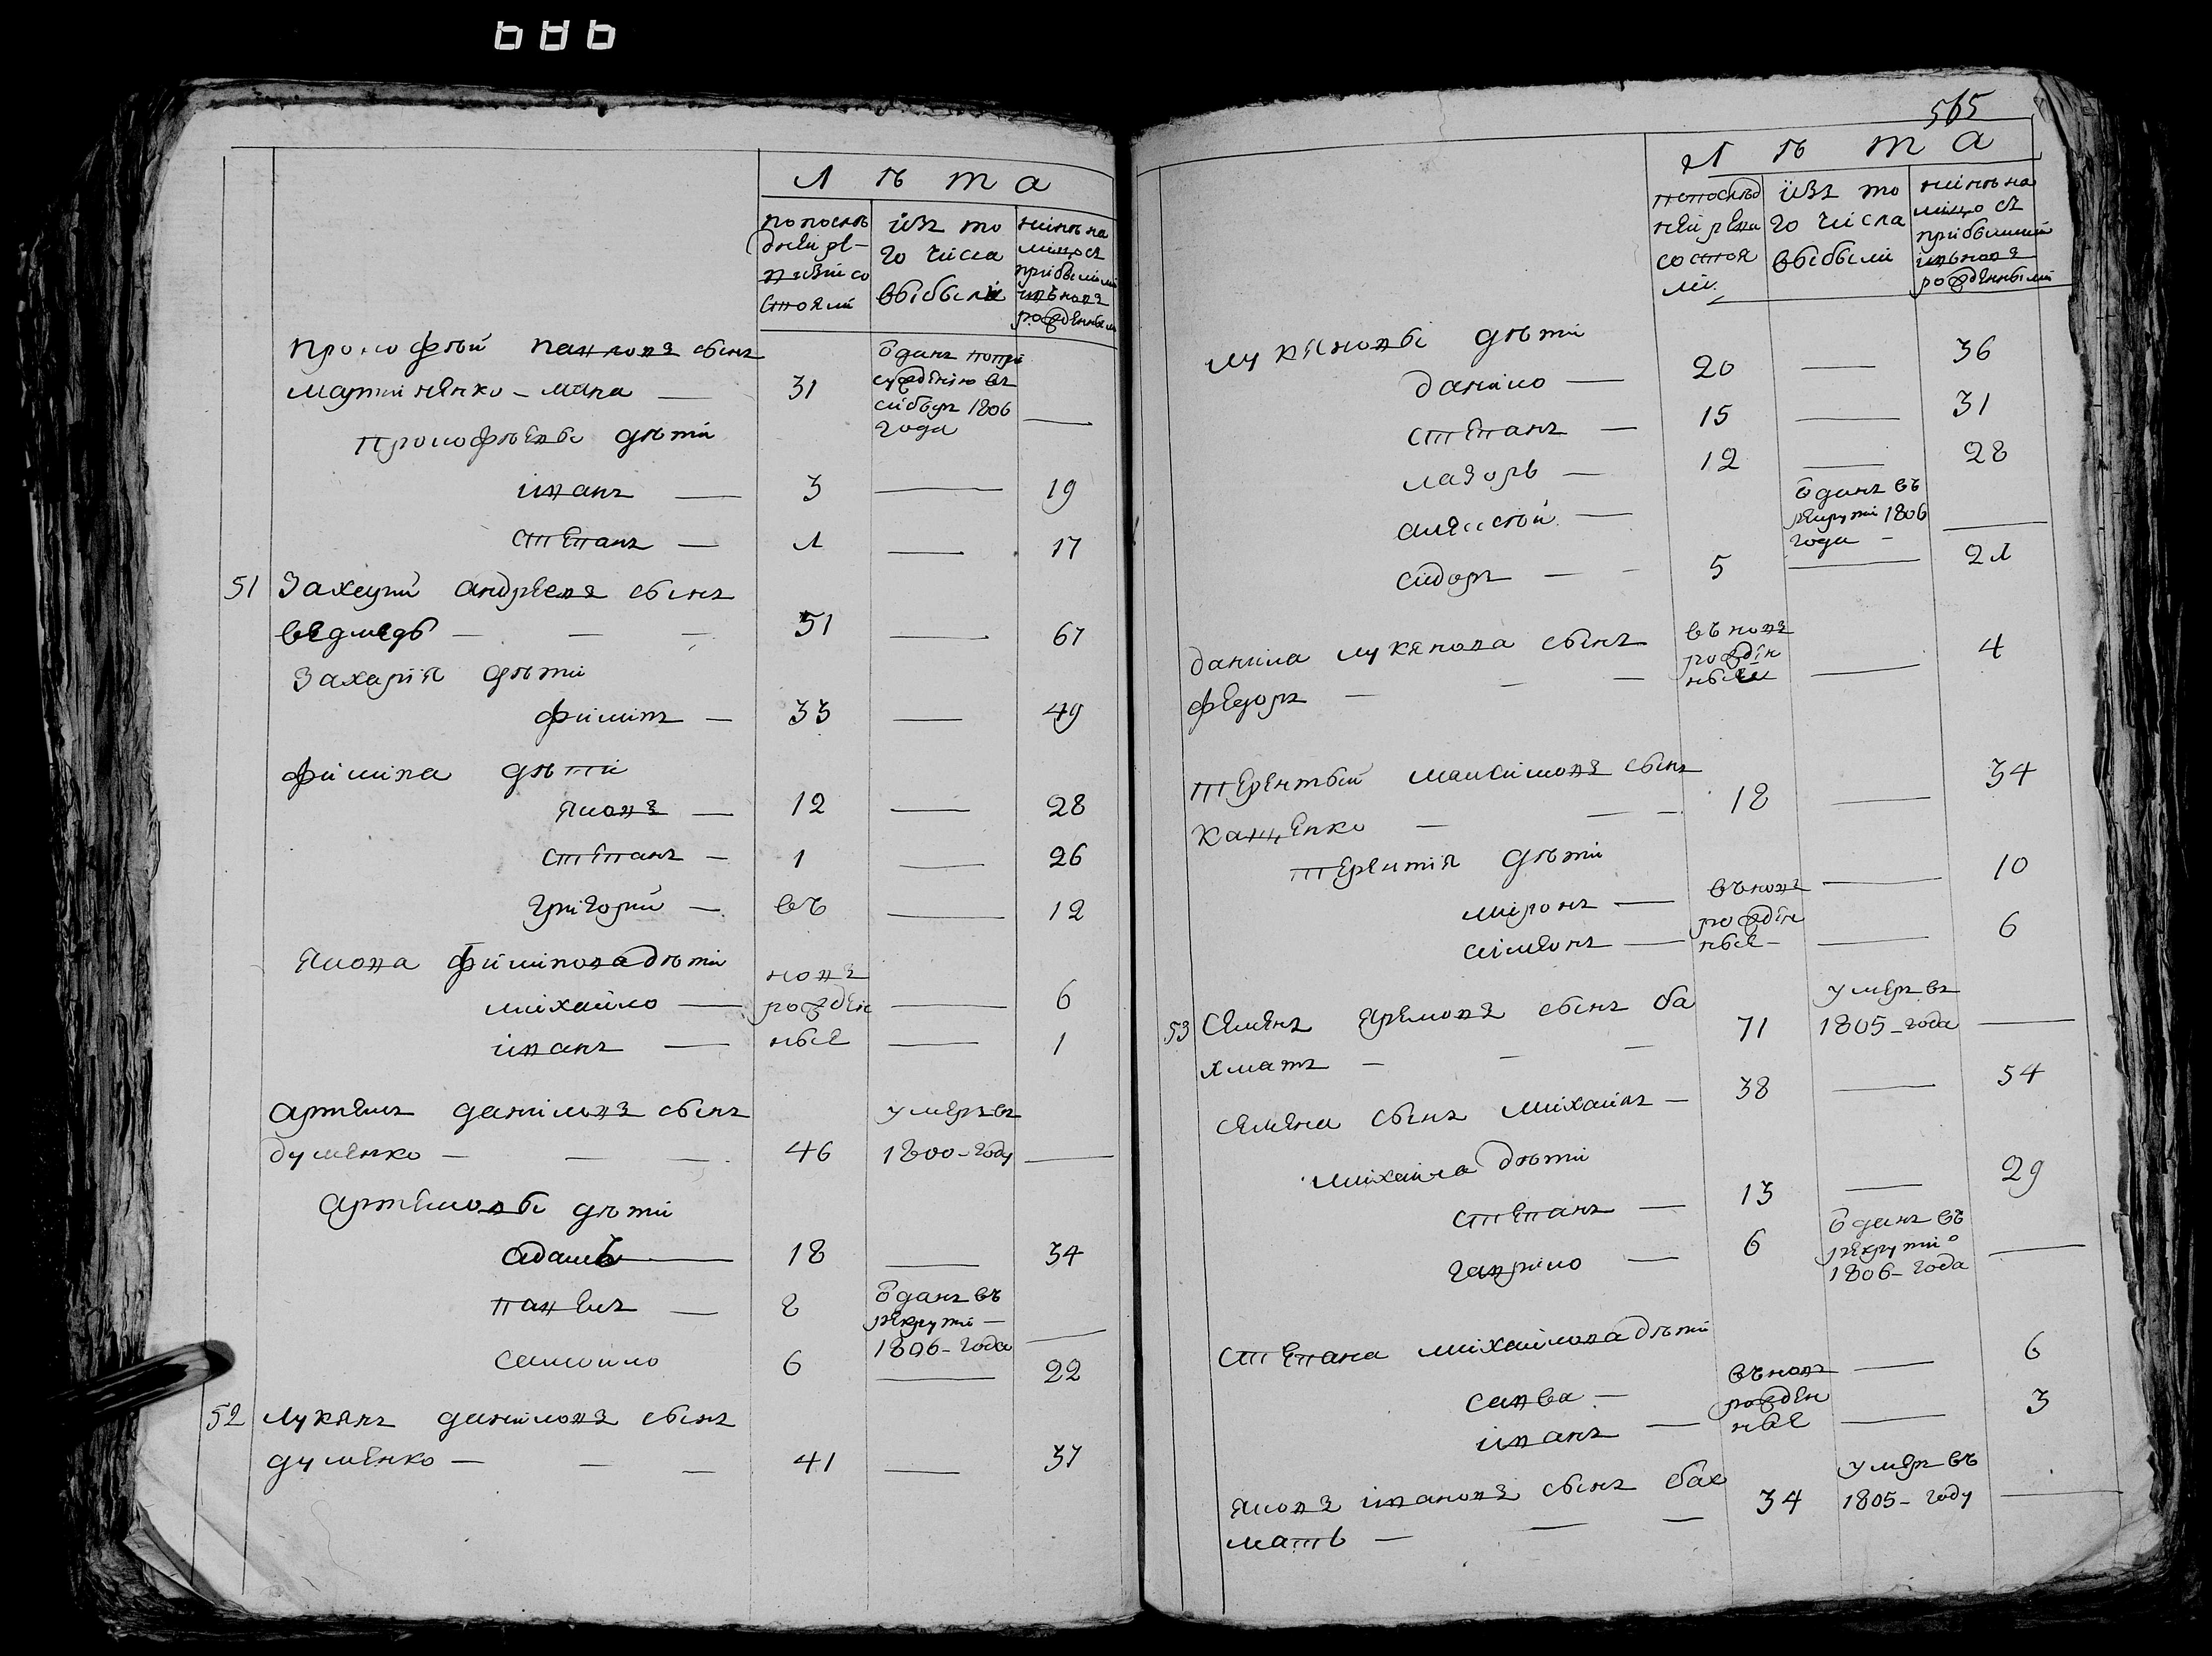 Лѣта
попослѣ
дней ре-
визіи со
стояли
изъ то
го числа
выбыли
нинѣ на
лицо съ
прибылими
ивновъ
рожденными
Прокофѣй павловъ сынъ
мартиненко-
31
ѿданъ
въ
сибѣръ 1806
года
Прокофѣевы дѣти
иванъ — 3 — 19
степанъ — — 17
51 Захарий андреевъ сынъ
ведмедь — — — 51 — 67
Захария дѣти
филипъ — 33 — 49
филипа дѣти
яковъ — 12 — 28
степанъ — 1 — 26
григорий — въ — 12
якова филипова дѣти
новъ
михайло — рожден — 6
иванъ — ные — 1
артемъ даниловъ сынъ умеръ въ
думенко — — — 46 1800-году —
артемовы дѣти
адамъ — 18 — 34
павелъ — 2 ѿданъ въ
рекрути —
1806-года —
самойло 6 — 22
52 лукянъ даниловъ сынъ
думенко — — — 41 — 37
565
Лѣта
попослѣд
ней реви
состоя
ли
изъ то
го числа
выбыли
нинѣ на
лицо съ
прибылими
ивновъ
рожденными
лукяновы дѣти
данило — 20 — 36
степанъ — 15 — 31
лазорь — 12 — 28
алексѣй — ѿданъ въ
рекрути 1806
года — —
сидоръ — — 5 —
данила лукянова сынъ въновъ
федоръ — — — рожден
ные — 4
терентѣй максимовъ сынъ
кащенко — — — 18 — 34
терентия дѣти
миронъ — въновъ — 10
рожден
симеонъ — ные- — 6
53 Семенъ яремовъ сынъ ба
хматъ — — — 71 умеръ въ
1805-года —
семена сынъ михайлъ — 38 — 54
михайла дѣти
степанъ — 13 — 29
гаврило — 6 ѿданъ въ
рекрути
1806-года —
степана михайлова дѣти
савва — въновъ — 6
рожден
иванъ — ные — 3
яковъ ивановъ сынъ бах
мать — — — 34 умеръ въ
1805-году —